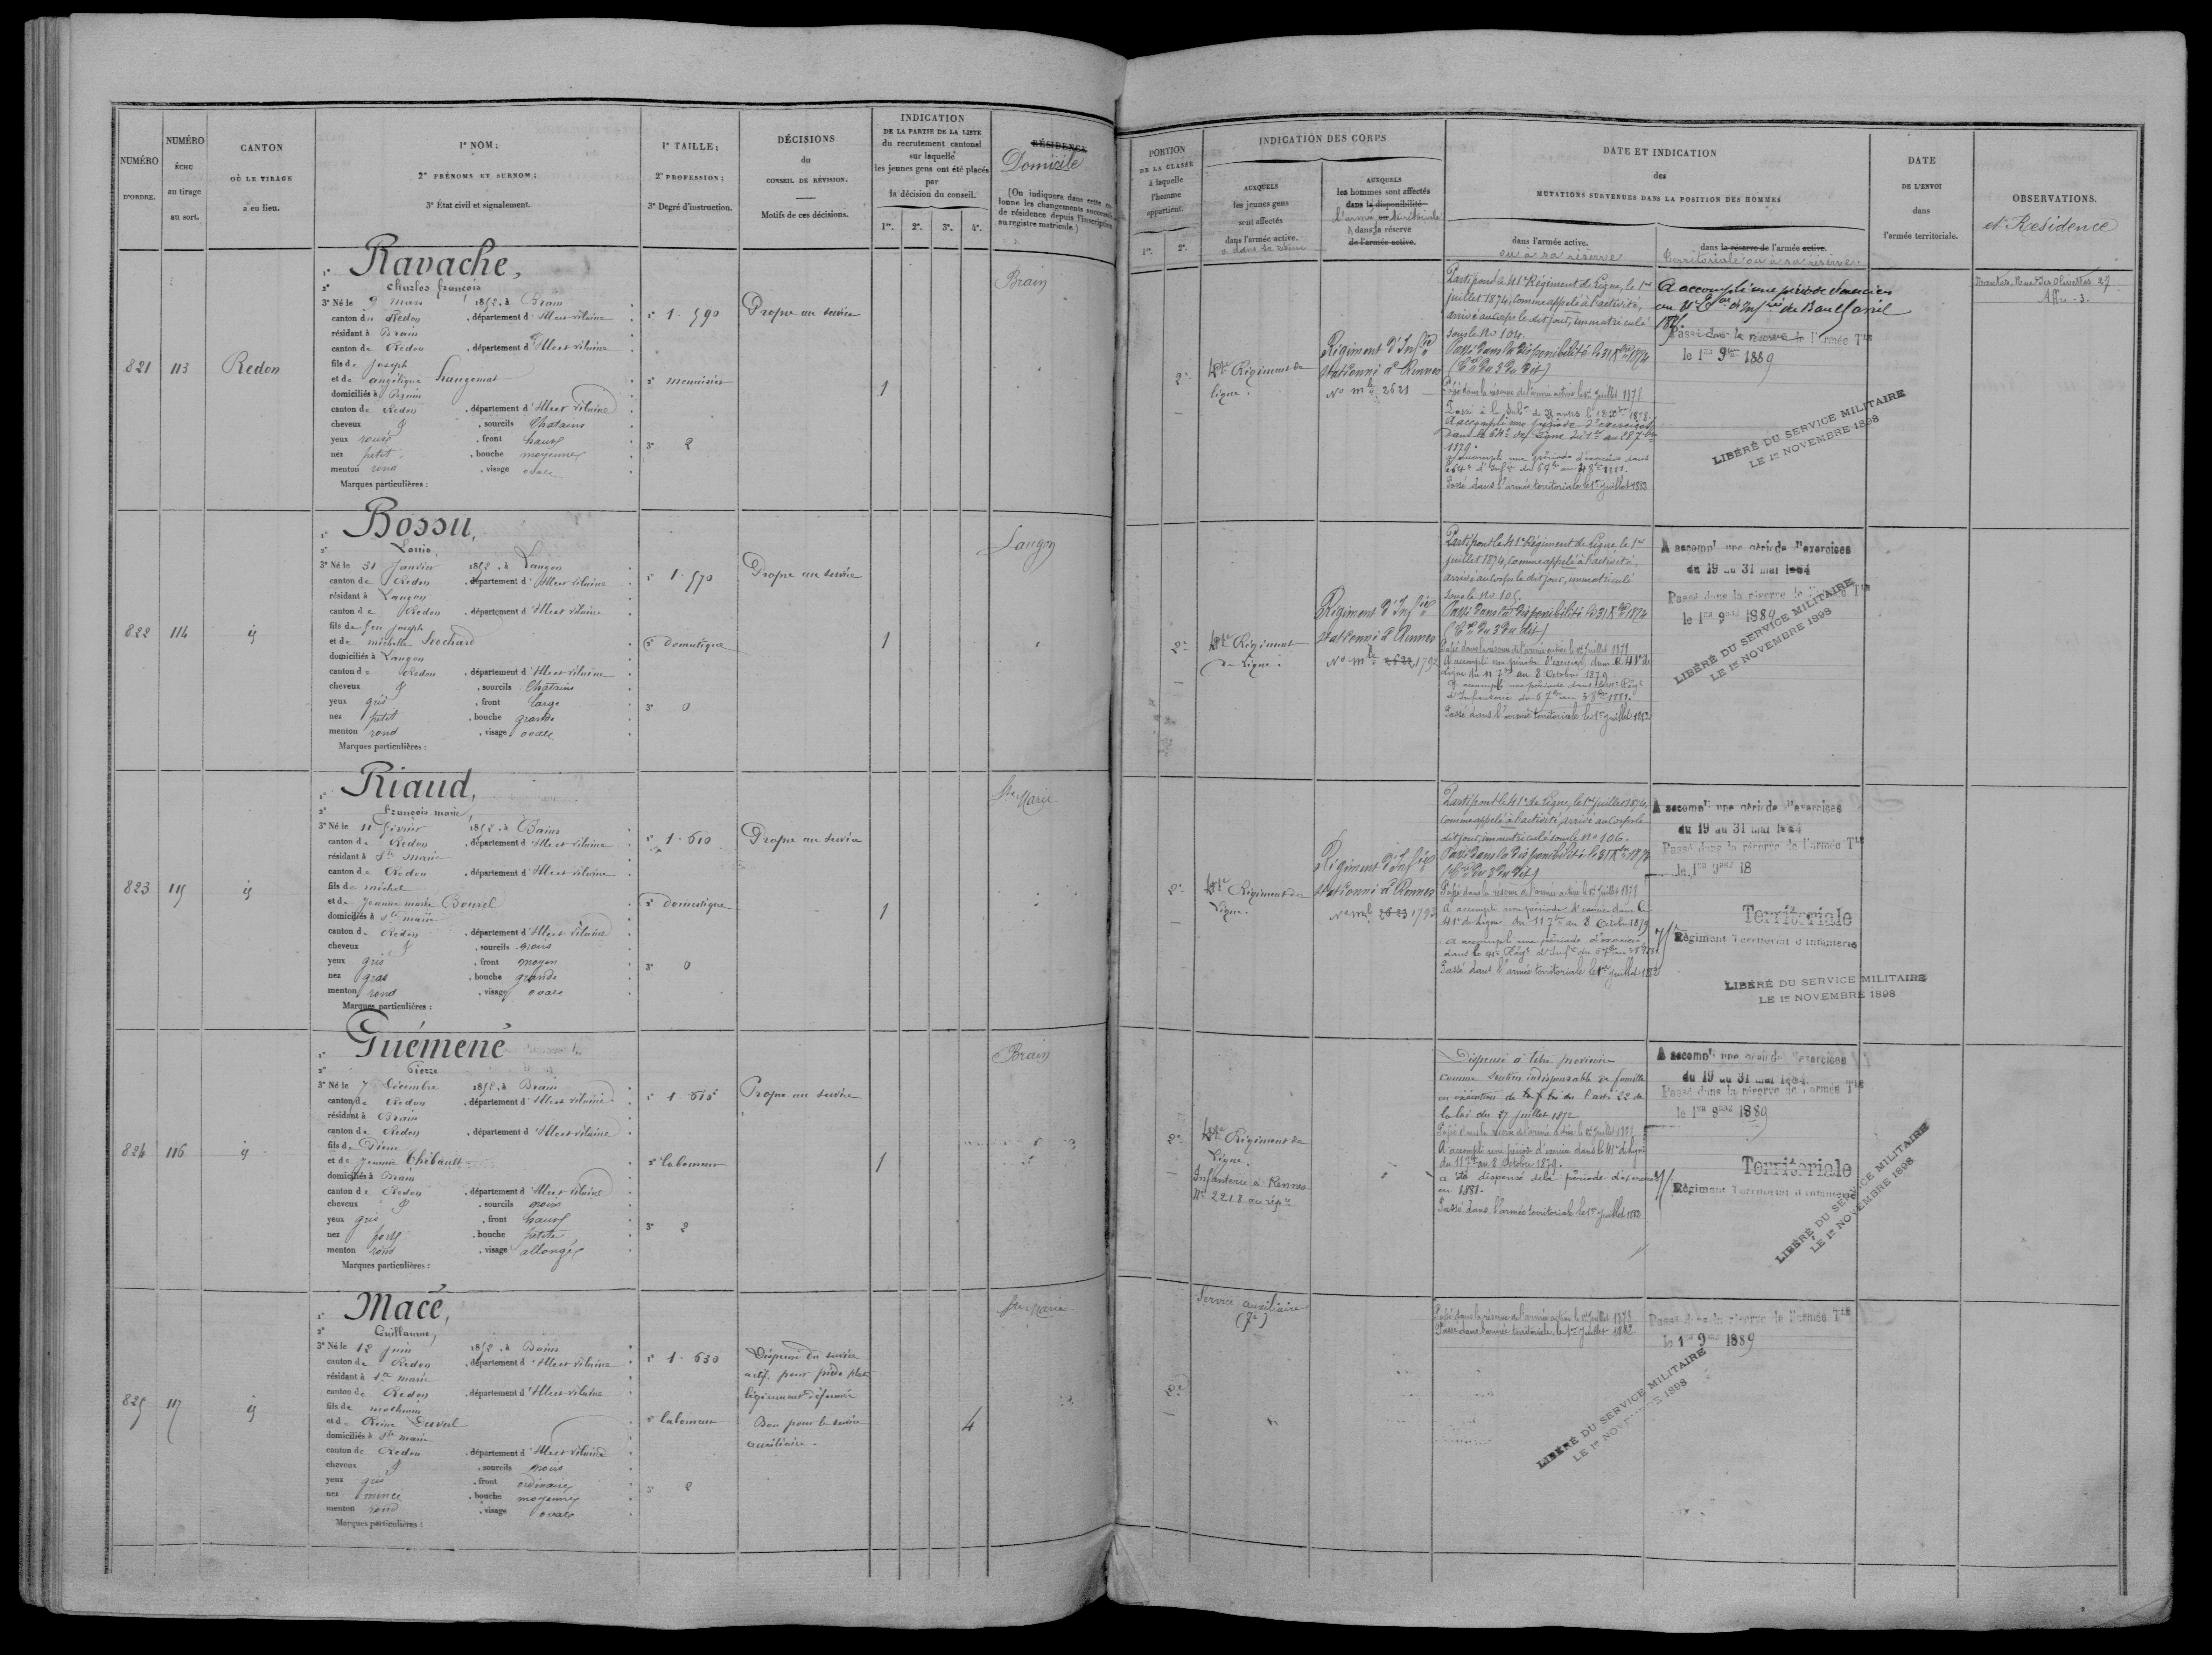 NUMÉRO
D'ORDRE.
NUMÉRO
ÉCHU
au tirage
au sort.
CANTON
OÙ LE TIRAGE
a eu lieu.
1º NOM;
2º PRÉNOMS ET SURNOM;
3º État civil et signalement.
1º TAILLE;
2º PROFESSION;
3º Degré d'instruction.
DÉCISIONS
du
CONSEIL DE RÉVISION.
Motifs de ces décisions.
INDICATION
DE LA PARTIE DE LA LISTE
du recrutement cantonal
sur laquelle
les jeunes gens ont été placés
par
la décision du conseil.
1re. 2e. 3e. 4e.
RÉSIDENCE
Domicile
(On indiquera dans cette co-
lonne les changements successifs
de résidence depuis l'inscription
au registre matricule.)
PORTION
DE LA CLASSE
à laquelle
l'homme
appartient.
1re. 2e.
INDICATION DES CORPS
AUXQUELS
les jeunes gens
sont affectés
dans l'armée active.
AUXQUELS
les hommes sont affectés
dans la disponibilité
l'armée territoriale
& dans la réserve
de l'armée active.
DATE ET INDICATION
des
MUTATIONS SURVENUES DANS LA POSITION DES HOMMES
dans l'armée active.
ou à sa réserve
dans la réserve de l'armée active.
territoriale ou à sa réserve
DATE
DE L'ENVOI
dans
l'armée territoriale.
OBSERVATIONS.
et Résidence
821 113 Redon
1º Ravache,
2º Charles françois
3º Né le 9 mars 1852, à Brain
canton de Redon, département d'Ille et vilaine
résidant à Brain
canton de Redon, département d'Ille et vilaine
fils de Joseph
et de angélique
domiciliés à Brain
canton de Redon, département d'Ille et vilaine
cheveux & , sourcils Chatains
yeux roux, front haut
nez petit, bouche moyenne
menton rond, visage ovale
Marques particulières :
1º 1.590
2º menuisier
3º 2
Propre au service
1
Brain
2e
41e Régiment de
ligne.
Régiment d'Infie
stationné à Rennes
No mle 2621
Parti pour le 41e Régiment de Ligne, le 1er
juillet 1874, comme appelé à l'activité,
arrivé au corps le dit jour, immatriculé
sous le No 104.
Passé dans la disponibilité le 31 Xbre 1874
Passé dans la réserve de l'armée active le 1er Juillet 1878
A accompli une période d'exercices
dans le 64e de Ligne du 1er au 28 7bre
1879.
Passé dans l'armée territoriale le 1er Juillet 1883
A accompli une période d'exercices
Passé dans la réserve de l'armée Tle
le 1er 9bre 1889
LIBÉRÉ DU SERVICE MILITAIRE
LE 1er NOVEMBRE 1898
Nantes, Rue des Olivettes 27
822 114 id
1º Bossu,
2º Louis,
3º Né le 31 Janvier 1852, à Langon
canton de Redon, département d'Ille et vilaine
résidant à Langon
canton de Redon, département d'Ille et vilaine
fils de feu Joseph
et de michelle
domiciliés à Langon
canton de Redon, département d'Ille et vilaine
cheveux & , sourcils Chatains
yeux gris, front large
nez petit, bouche grande
menton rond, visage ovale
Marques particulières :
1º 1.570
2º Domestique
3º 0
Propre au service
1
Langon
2e
41e Régiment
de Ligne.
Régiment d'Infie
stationné à Rennes
No mle 2622 1792
Parti pour le 41e Régiment de Ligne le 1er
juillet 1874, comme appelé à l'activité,
arrivé au corps le dit jour, immatriculé
sous le No 105.
Passé dans la disponibilité le 31 Xbre 1874
Passé dans la réserve de l'armée active le 1er Juillet 1878
A accompli une période d'exercices dans le 41e de
Ligne du 11 7bre au 8 Octobre 1879
Passé dans l'armée territoriale le 1er Juillet 1883
A accompli une période d'exercices
du 19 au 31 mai 1884
Passé dans la réserve de l'armée Tle
le 1er 9bre 1889
LIBÉRÉ DU SERVICE MILITAIRE
LE 1er NOVEMBRE 1898
823 115 id
1º Riaud,
2º François marie
3º Né le 11 février 1852, à Bains
canton de Redon, département d'Ille et vilaine
résidant à Ste Marie
canton de Redon, département d'Ille et vilaine
fils de michel
et de Jeanne marie Bourel
domiciliés à Ste marie
canton de Redon, département d'Ille et vilaine
cheveux & , sourcils noirs
yeux gris, front moyen
nez gros, bouche grande
menton rond, visage ovale
Marques particulières :
1º 1.610
2º Domestique
3º 0
Propre au service
1
Ste Marie
2e
41e Régiment de
Ligne.
Régiment d'Infie
stationné à Rennes
No mle 2623 1793
Parti pour le 41e de Ligne, le 1er juillet 1874,
comme appelé à l'activité, arrivé au corps le
dit jour, immatriculé sous le No 106.
Passé dans la disponibilité le 31 Xbre 1874
Passé dans la réserve de l'armée active le 1er Juillet 1878
A accompli une période d'exercices dans le
41e de Ligne du 11 7bre au 8 Octobre 1879
Passé dans l'armée territoriale le 1er Juillet 1883
A accompli une période d'exercices
du 19 au 31 mai 1884
Passé dans la réserve de l'armée Tle
le 1er 9bre 18
Territoriale
Régiment Territorial d'Infanterie
LIBÉRÉ DU SERVICE MILITAIRE
LE 1er NOVEMBRE 1898
824 116 id
1º Guémené
2º Pierre
3º Né le 7 Décembre 1852, à Brain
canton de Redon, département d'Ille et vilaine
résidant à Brain
canton de Redon, département d'Ille et vilaine
fils de Pierre
et de Jeanne Thébault
domiciliés à Brain
canton de Redon, département d'Ille et vilaine
cheveux & , sourcils noirs
yeux gris, front haut
nez fort, bouche petite
menton rond, visage allongé
Marques particulières :
1º 1.615
2º laboureur
3º 2
Propre au service
1
Brain
2e
41e Régiment de
Ligne.
Infanterie à Rennes
No 2218 au répre
Dispensé à titre provisoire
comme soutien indispensable de famille
en exécution de l'art. 22 de
la loi du 27 juillet 1872
Passé dans la réserve de l'armée active le 1er Juillet 1878
A accompli une période d'exercices dans le 41e de Ligne
du 11 7bre au 8 Octobre 1879.
a été dispensé de la période d'exercices
en 1881.
Passé dans l'armée territoriale le 1er Juillet 1883
A accompli une période d'exercices
du 19 au 31 mai 1884
Passé dans la réserve de l'armée Tle
le 1er 9bre 1889
Territoriale
Régiment Territorial d'Infanterie
LIBÉRÉ DU SERVICE MILITAIRE
LE 1er NOVEMBRE 1898
825 117 id
1º Macé,
2º Guillaume,
3º Né le 12 juin 1852, à Bains
canton de Redon, département d'Ille et vilaine
résidant à Ste marie
canton de Redon, département d'Ille et vilaine
fils de mathurin
et de Reine Duval
domiciliés à Ste marie
canton de Redon, département d'Ille et vilaine
cheveux & , sourcils noirs
yeux gris, front ordinaire
nez mince, bouche moyenne
menton rond, visage ovale
Marques particulières :
1º 1.630
2º laboureur
3º 2
Dispensé du service
actif pour pieds plats
légèrement déformés
Bon pour le service
auxiliaire.
4
Ste Marie
2e
Service auxiliaire
Passé dans la réserve de l'armée active le 1er Juillet 1878
Passé dans l'armée territoriale, le 1er Juillet 1882
Passé dans la réserve de l'armée Tle
le 1er 9bre 1889
LIBÉRÉ DU SERVICE MILITAIRE
LE 1er NOVEMBRE 1898